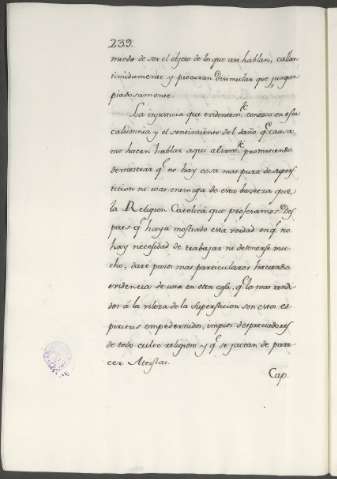 239.
miedo de ser el objeto de lo que asi hablan, callan
timidamente y procuran disimular que juzgan
piadosamente.
La injusticia que evidentem.te conozco en esta
calumnia y el sentimiento del daño q.e causa
me hacen hablar aqui altam.te prometiendo
demostrar q.e no hay cosa mas pura de supers-
ticion ni mas enemiga de esta baxeza que
la Religion Catolica que profesamos. Des
pues q.e haya mostrado esta verdad en q.e no
hay necesidad de trabajar ni detenerse mu-
cho, dare pasos mas particulares haciendo
evidencia de una en otra cosa, q.e lo mas rendi-
dos à la vileza de la Supersticion son estos es
piritus empedernidos, impios despreciadores
de todo culto religioso y q.e se jactan de pare
cer Ateistas.
Cap.